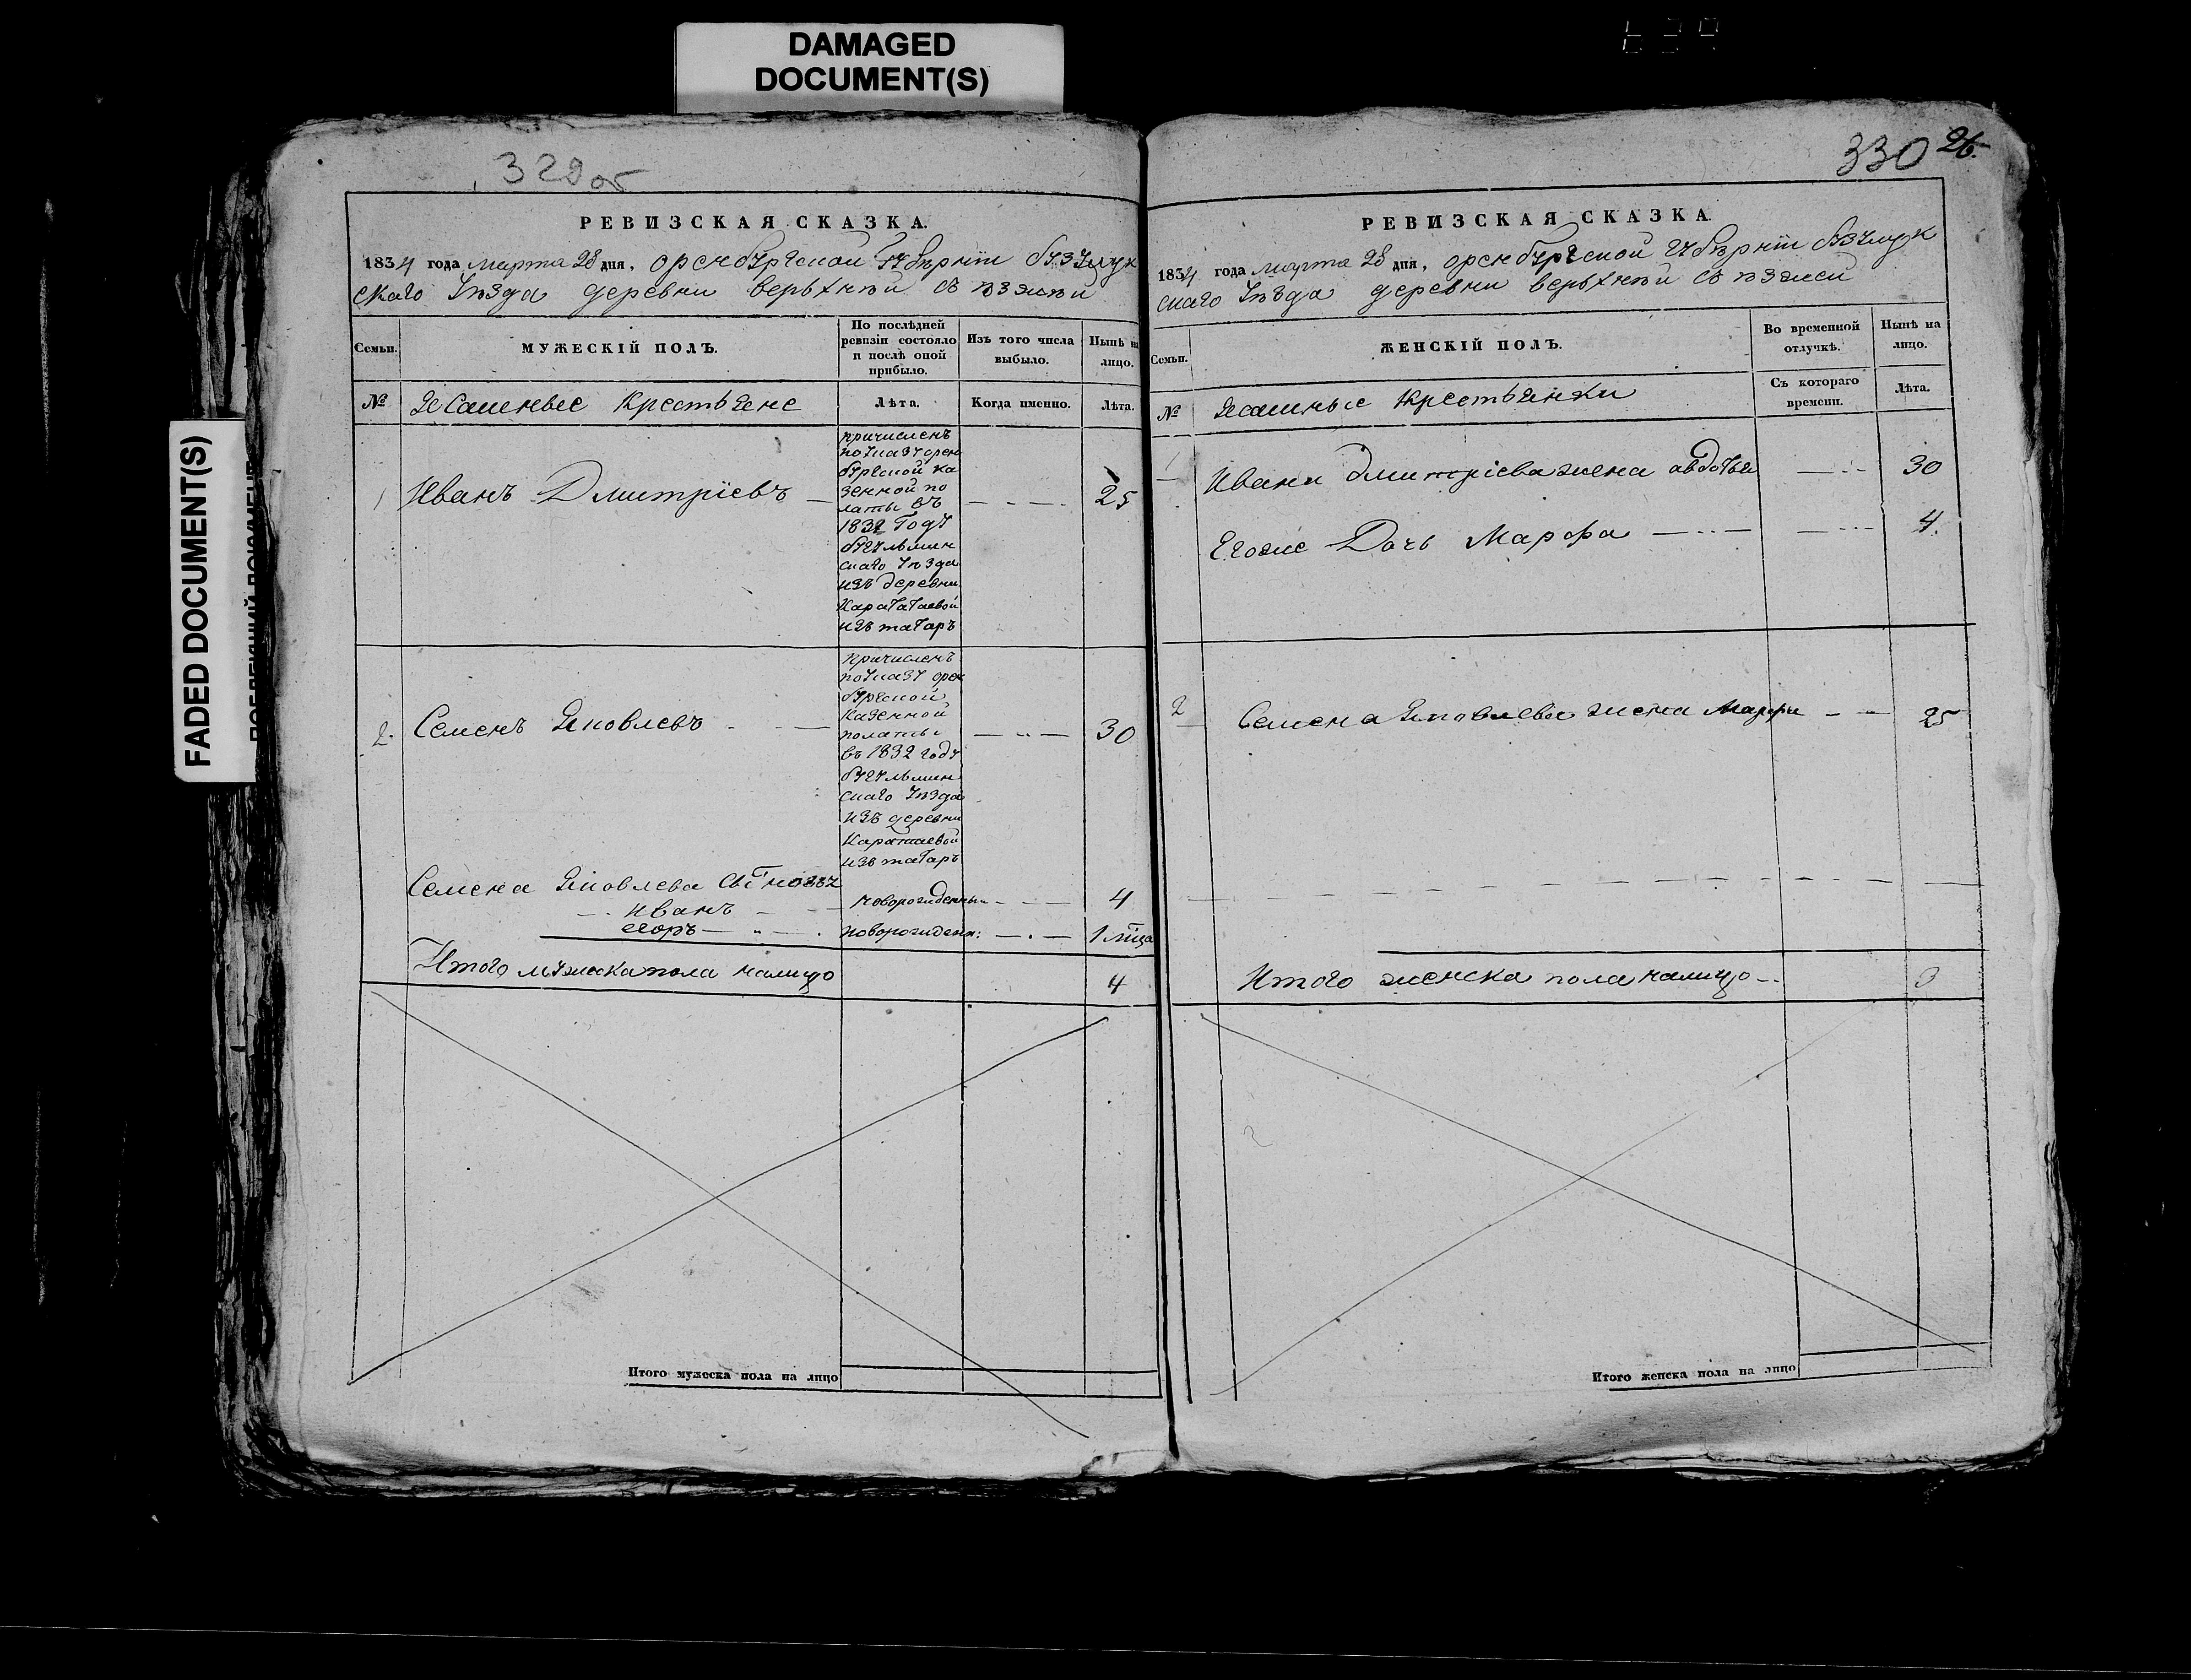 DAMAGED
DOCUMENT(S)
FADED DOCUMENT(S)
329 об
РЕВИЗСКАЯ СКАЗКА.
1834 года марта 28 дня, оренбургской губернiи бузулук
скаго уѣзда деревни верьхнѣй
Семьи.
МУЖЕСКІЙ ПОЛЪ.
По послѣдней
ревизіи состояло
и послѣ оной
прибыло.
Изъ того числа
выбыло.
Нынѣ на
лицо.
№
Ясашныее крестьяне
Лѣта.
Когда именно.
Лѣта.
1
Иванъ Дмитрiевъ
причисленъ
поуказу орен
бургской ка
зенной по
латы въ
1832 году
бугульмин
скаго уѣзда
изъ деревни
из татаръ
25
2.
Семенъ Яковлевъ
причисленъ
поуказу орен
бургской
казенной
полаты
въ 1832 году
бугульмин
скаго уѣзда
изъ деревни
Каратаевой
изъ татаръ
30
Семена Яковлева
Иванъ
новорожденный
4
егоръ
новорожденн:
1
Итого мужска пола налицо
4
Итого мужеска пола на лицо
330 26.
РЕВИЗСКАЯ СКАЗКА.
1834 года марта 28 дня, оренбургской губернiи бузулук
скаго уѣзда деревни верьхнѣй
Семьи.
ЖЕНСКІЙ ПОЛЪ.
Во временной
отлучкѣ.
Нынѣ на
лицо.
№
Ясашные крестьянки
Съ котораго
времени.
Лѣта.
1
Ивана дмитрiева жена авдотья
30
Егоже Дочь Марфа
4.
2
Семена Яковлева жена Марфа
25
Итого женска пола налицо
3
Итого женска пола на лицо